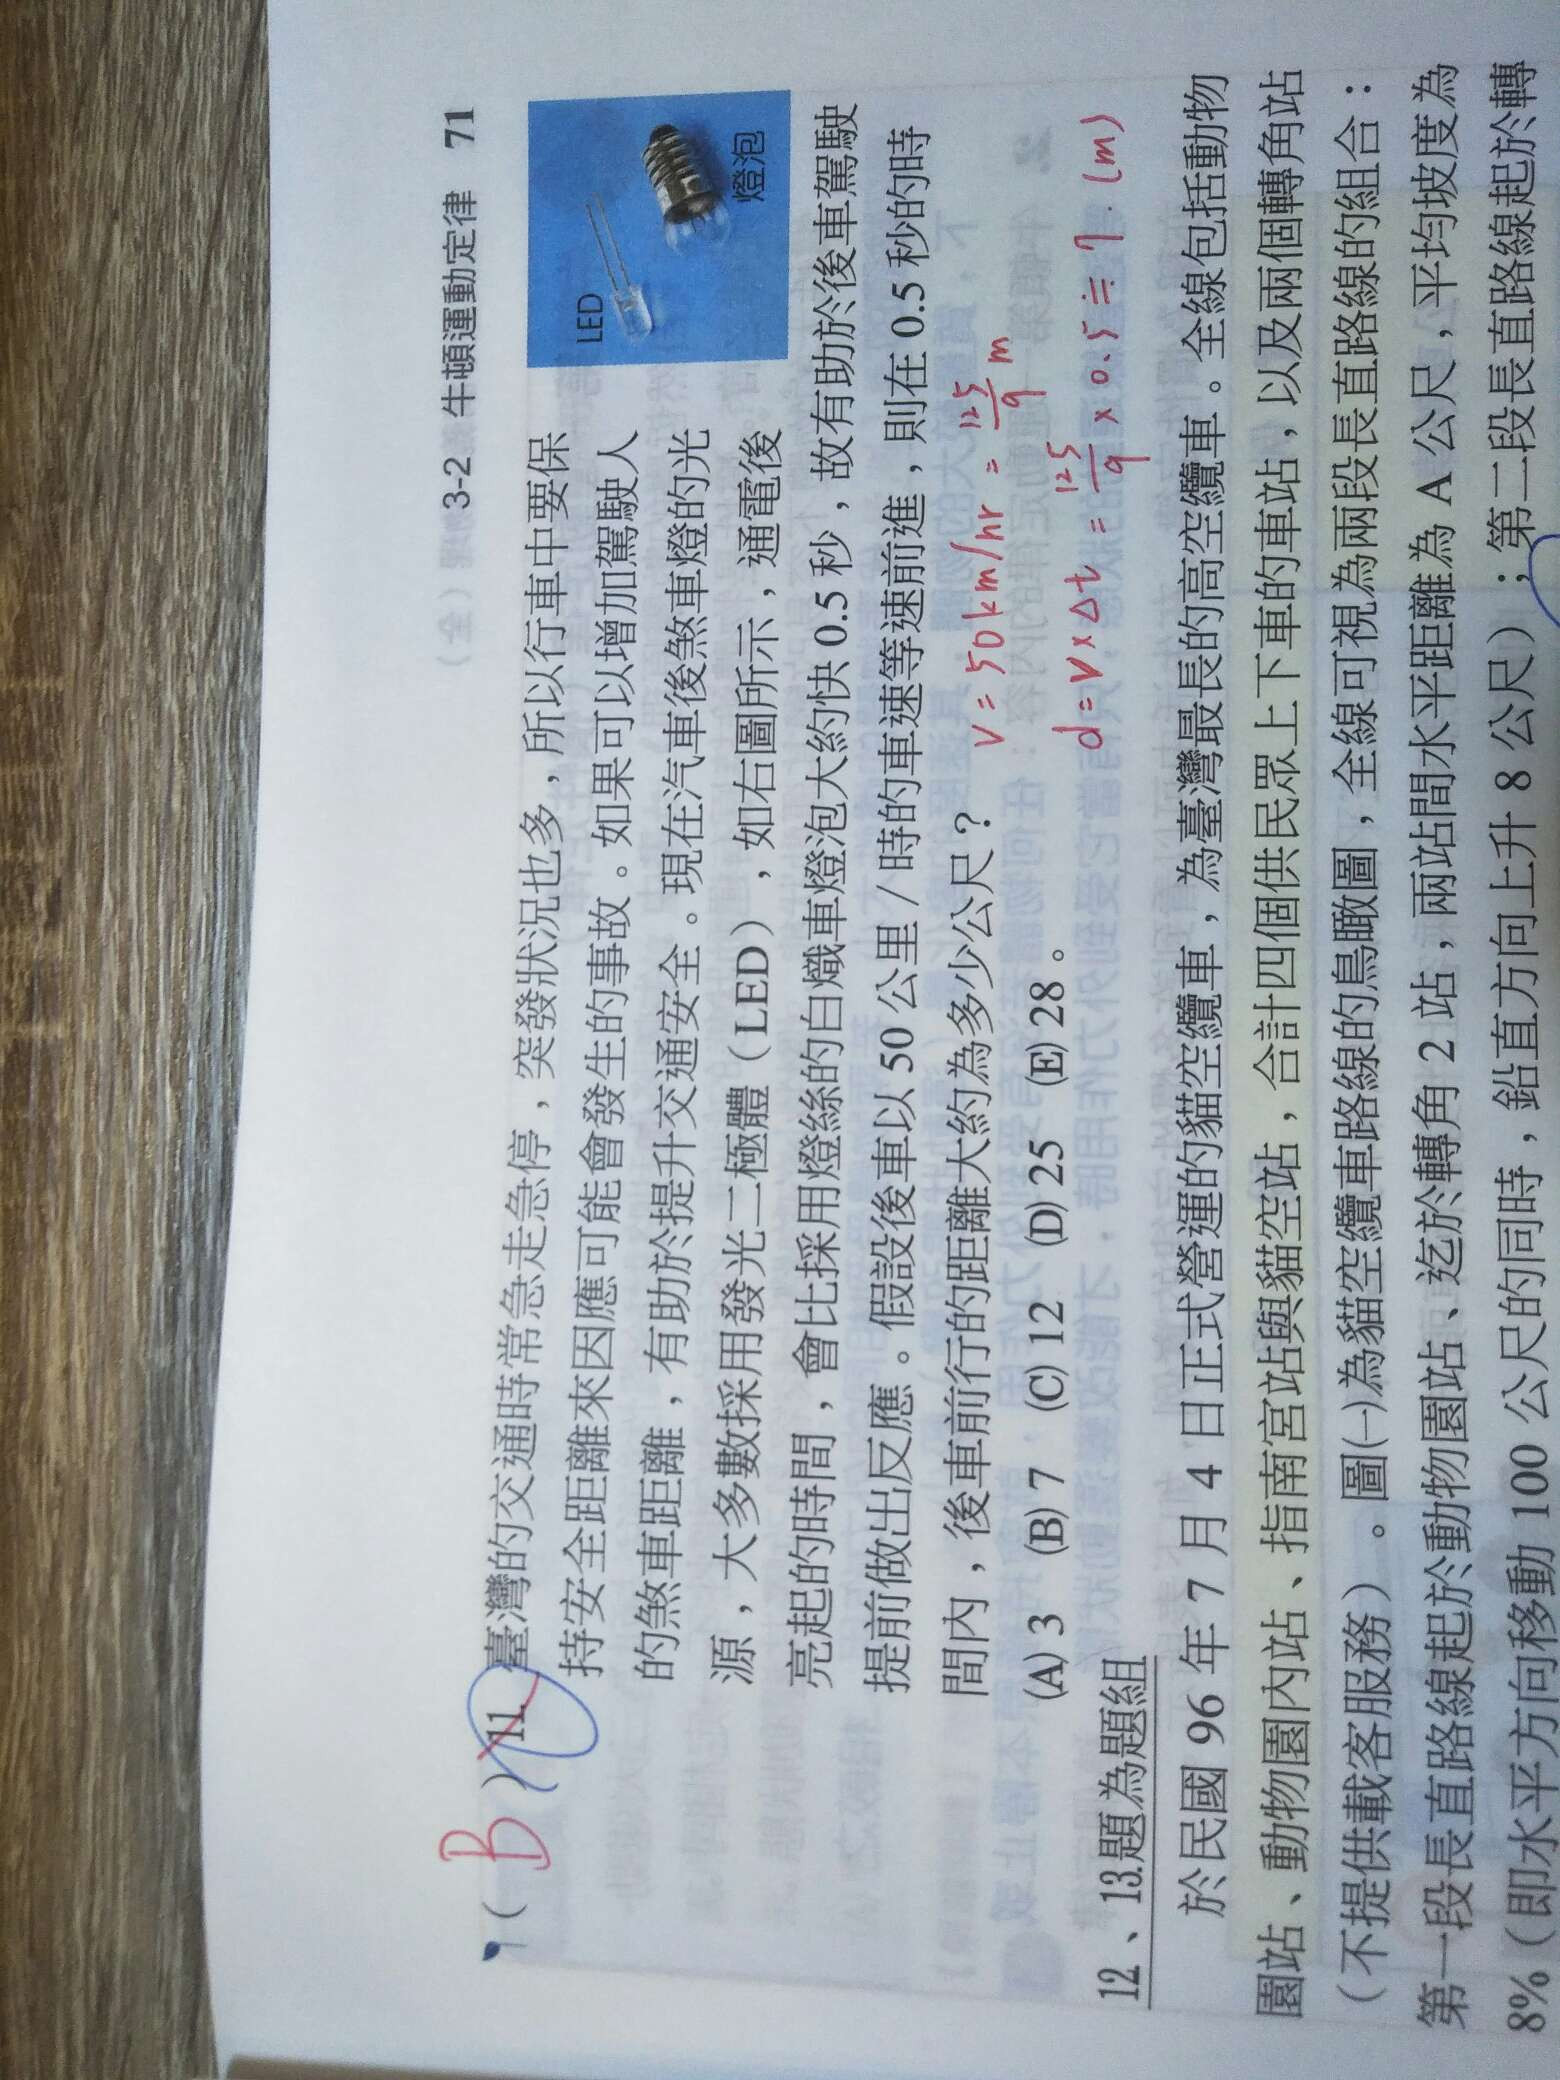 3-2 牛頓運動定律 71
( B ) 11. 臺灣的交通時常急走急停，突發狀況也多，所以行車中要保
持安全距離來因應可能會發生的事故。如果可以增加駕駛人
的煞車距離，有助於提升交通安全。現在汽車後煞車燈的光
源，大多數採用發光二極體（LED），如右圖所示，通電後
亮起的時間，會比採用燈絲的白熾車燈泡大約快 0.5 秒，故有助於後車駕駛
提前做出反應。假設後車以 50 公里／時的車速等速前進，則在 0.5 秒的時
間內，後車前行的距離大約為多少公尺？
(A) 3 (B) 7 (C) 12 (D) 25 (E) 28。
LED
燈泡
v = 50 km/hr = 125/9 m
d = v × Δt = 125/9 × 0.5 ≒ 7 (m)
12、13.題為題組
於民國 96 年 7 月 4 日正式營運的貓空纜車，為臺灣最長的高空纜車。全線包括動物
園站、動物園內站、指南宮站與貓空站，合計四個供民眾上下車的車站，以及兩個轉角站
（不提供載客服務）。圖(一)為貓空纜車路線的鳥瞰圖，全線可視為兩段長直路線的組合：
第一段長直路線起於動物園站、迄於轉角 2 站，兩站間水平距離為 A 公尺，平均坡度為
8%（即水平方向移動 100 公尺的同時，鉛直方向上升 8 公尺）；第二段長直路線起於轉